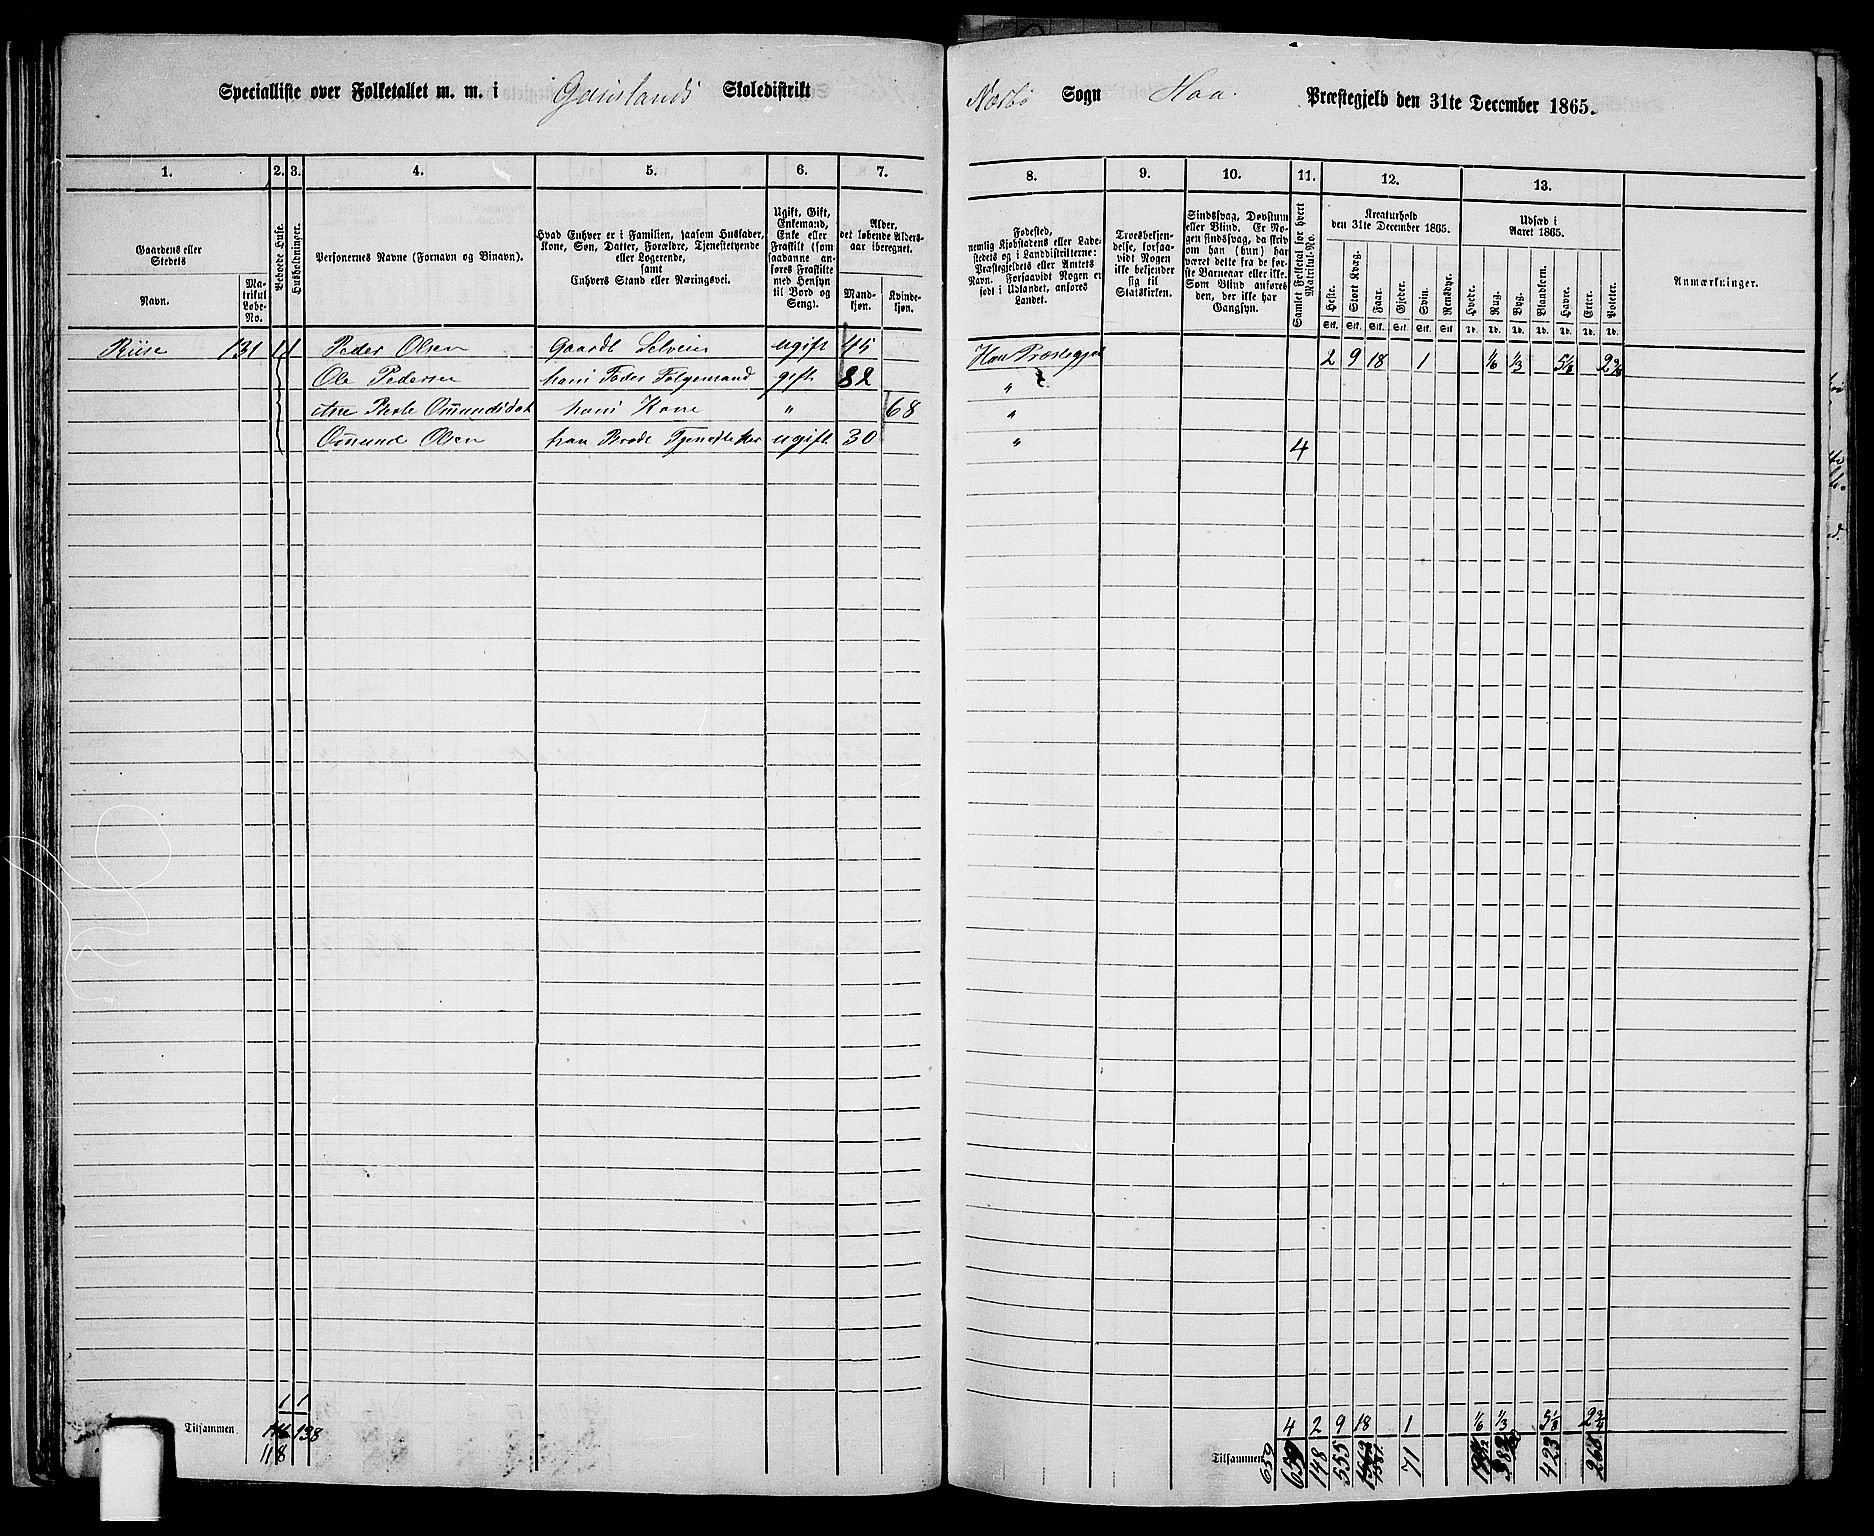 Specialliste over Folketallet m. m. i Skoledistrikt
Nærbø Sogn Haa. Præstegjeld den 31te December 1865.
1. 2. 3. 4. 5. 6. 7.
8. 9. 10. 11. 12. 13.
Gaardens eller
Stedets
Navn.
Matrikul
Løbe-
No.
Beboede Huse.
Husholdninger.
Personernes Navne (Fornavn og Binavn).
Hvad Enhver er i Familien, saasom Husfader,
Kone, Søn, Datter, Forældre, Tjenestetyende
eller Logerende,
samt
Enhvers Stand eller Næringsvei.
Ugift, Gift,
Enkemand,
Enke eller
Fraskilt (som
saadanne an-
føres Fraskilte
med Hensyn
til Bord og
Seng).
Alder,
det løbende Alders-
aar iberegnet.
Mand-
kjøn.
Kvinde-
kjøn.
Fødested,
nemlig Kjøbstadens eller Lade-
stedets og i Landdistrikterne:
Præstegjeldets eller Amtets
Navn. Forsaavidt Nogen er
født i Udlandet, anføres
Landet.
Troesbekjen-
delse, forsaa-
vidt Nogen
ikke bekjender
sig til
Statskirken.
Sindssvag, Døvstum
eller Blind. Er No-
gen sindssvag, da skriv
om han (hun) har
været dette fra de før-
ste Barneaar eller ikke.
Som Blind anføres
den, der ikke har
Gangsyn.
Samlet Folketal for hvert
Matrikul-No.
Kreaturhold
den 31te December 1865.
Heste. Stort Kvæg. Faar. Gjeder. Svin. Rensdyr.
Stk. Stk. Stk. Stk. Stk. Stk.
Udsæd i
Aaret 1865.
Hvede. Rug. Byg. Blandkorn. Havre. Erter. Poteter.
Td. Td. Td. Td. Td. Td. Td.
Anmærkninger.
Riise 131 1 1 Peder Olsen Gaardb Selveier ugift 45 Haa Præstegjeld 2 9 18 1 1/6 1/3 5 1/8
Ole Pedersen hans Fader Følgemand gift 82 "
Ane Berte Omundsdat hans Kone " 68 "
Omund Olsen ugift 30 " 4
1 1
Tilsammen. 138
118
4 2 9 18 1 1/6 1/3 5 1/8 2 3/4
Tilsammen 659 148 555 71 423